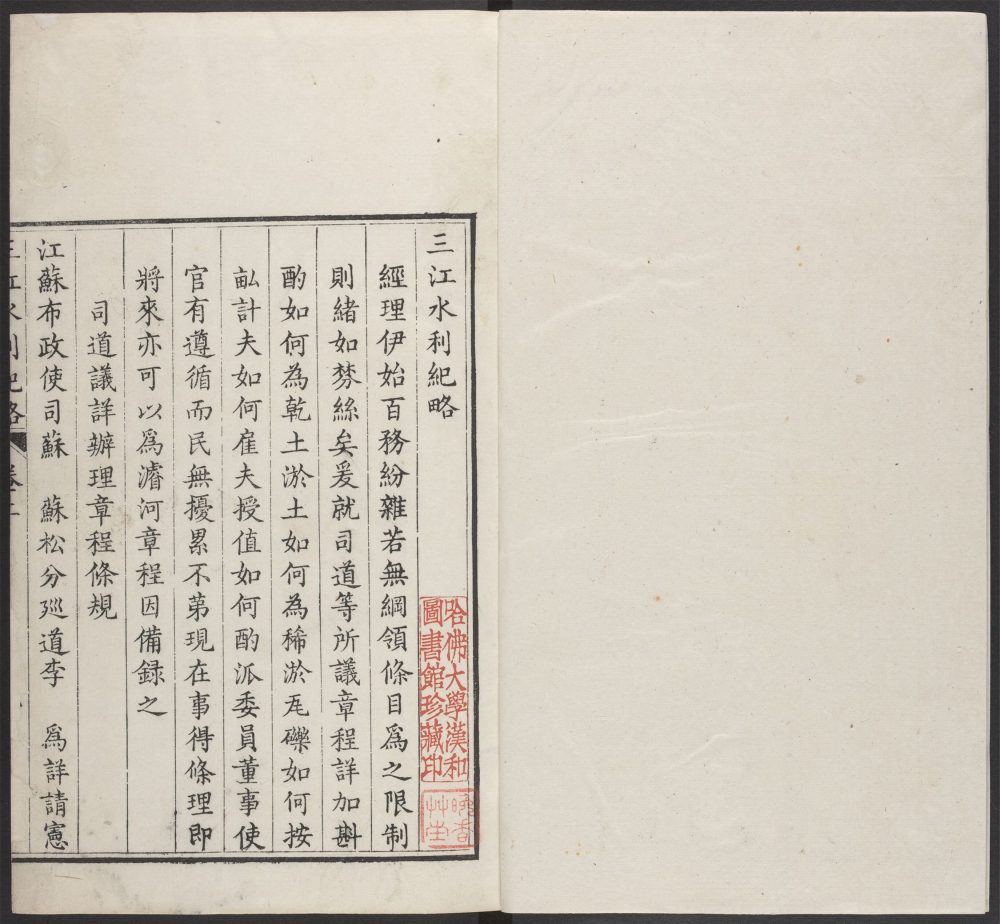 三江水利紀略
經理伊始百務紛雜若無綱領條目爲之限制
則緒如棼絲矣爰就司道等所議章程詳加斟
酌如何為乾土淤土如何為稀淤瓦礫如何按
畆計夫如何雇夫授值如何酌派委員董事使
官有遵循而民無擾累不苐現在事得條理即
將來亦可以爲濬河章程因備録之
司道議詳辦理章程條規
江蘇布政使司蘇　蘇松分廵道李　爲詳請憲
三江水利紀略 卷二
哈佛大學漢和
圖書館珍藏印